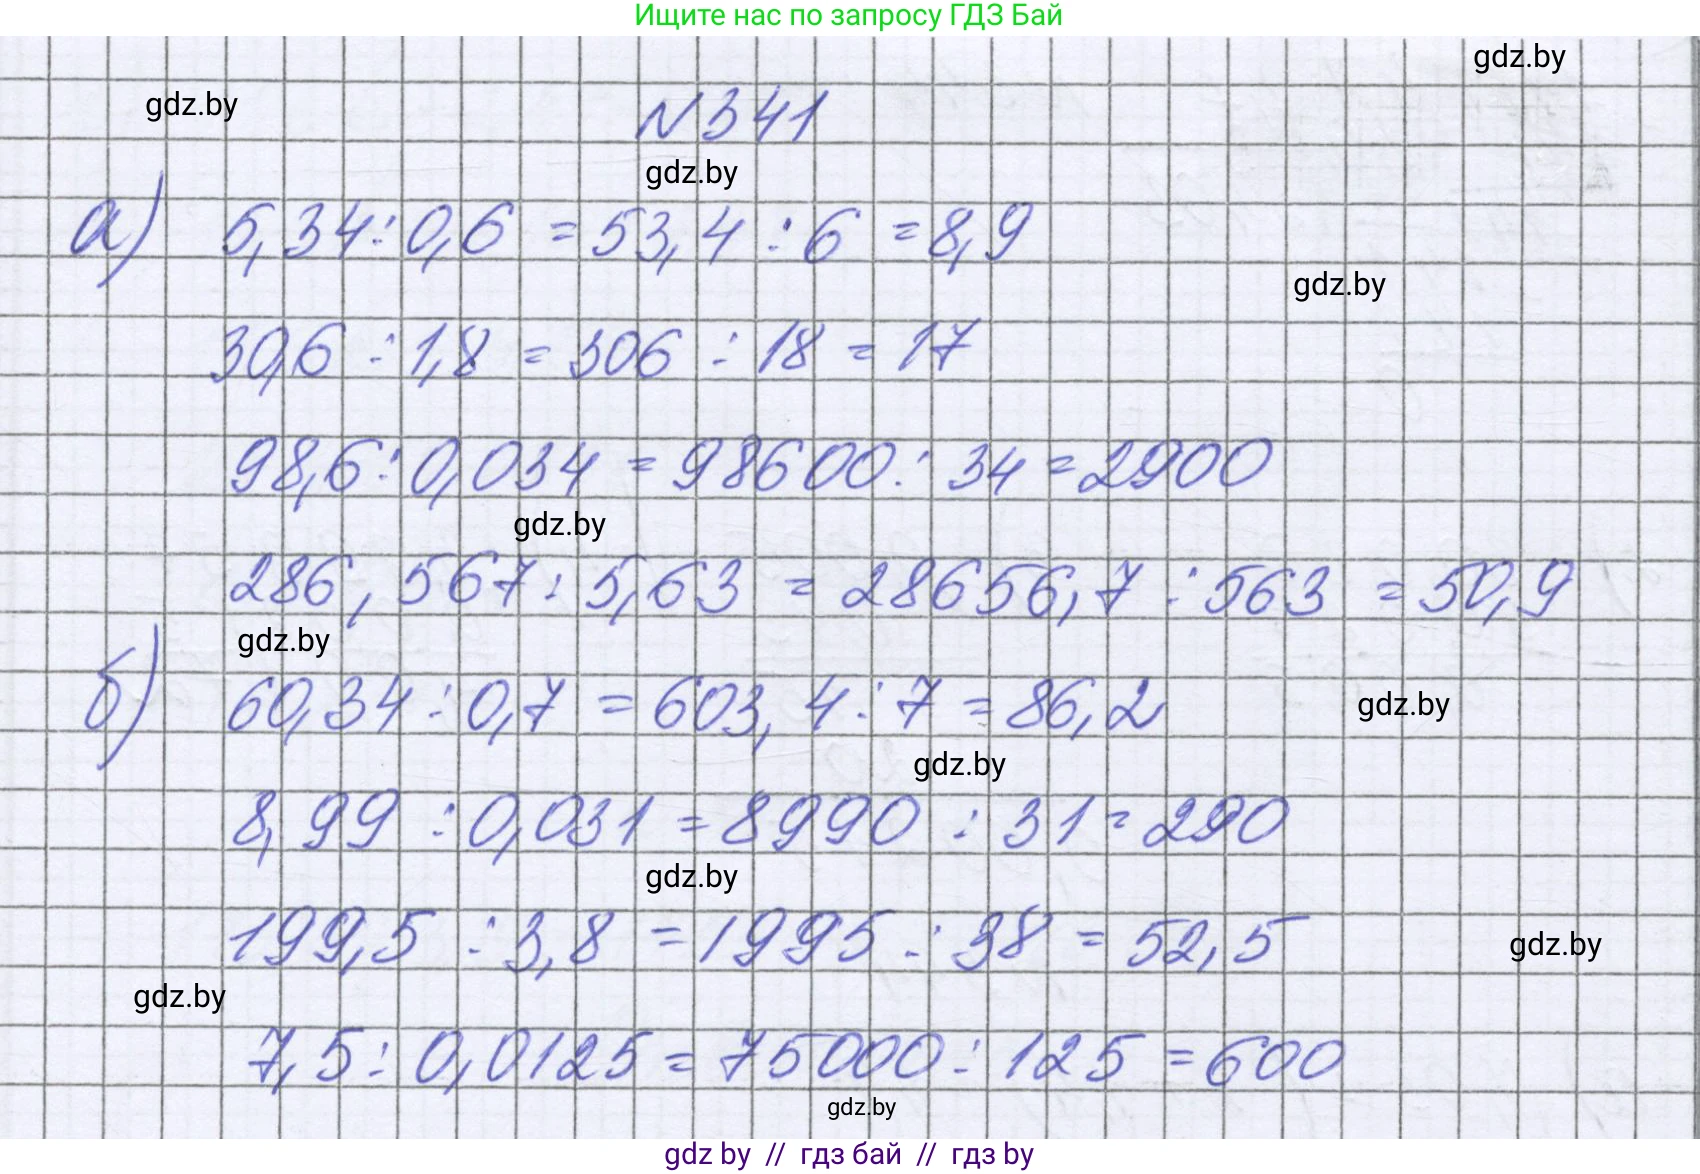 Ищите нас по запросу ГДЗ Бай
gdz.by
gdz.by
N341
gdz.by
а) 5,34:0,6 = 53,4:6 = 8,9
gdz.by
30,6:1,8 = 306:18 = 17
98,6:0,034 = 98600:34 = 2900
gdz.by
286,567:5,63 = 28656,7:563 = 50,9
gdz.by
б) 60,34:0,7 = 603,4:7 = 86,2
gdz.by
gdz.by
8,99:0,031 = 8990:31 = 290
gdz.by
199,5:3,8 = 1995:38 = 52,5
gdz.by
gdz.by
7,5:0,0125 = 75000:125 = 600
gdz.by
gdz by // гдз бай // гдз by